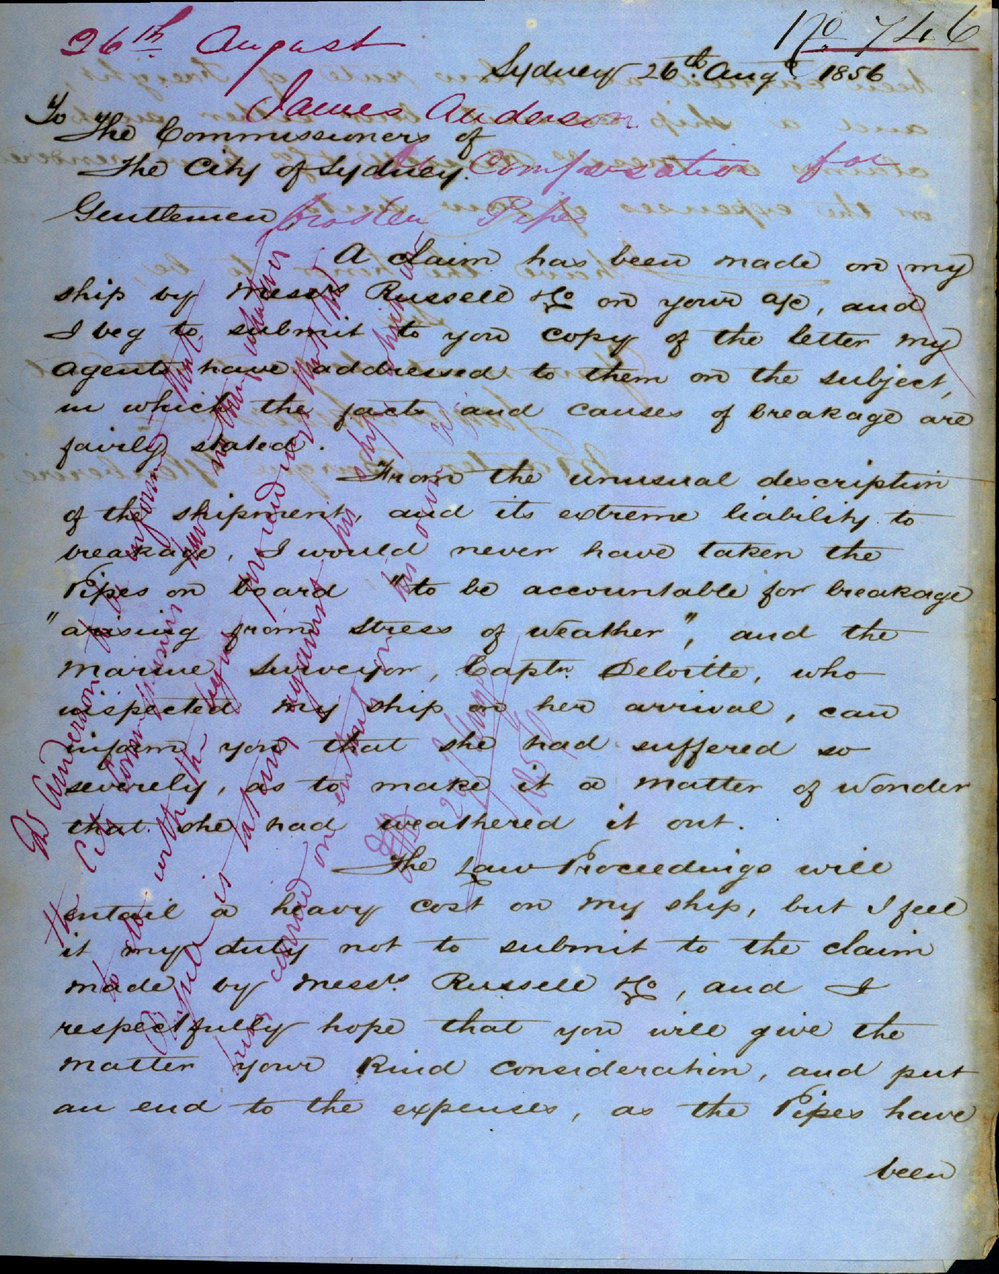 No 746
26th August
Sydney 26th Augt 1856
James Anderson
To
The Commissioners of
The City of Sydney.
Compensation for
Gentlemen
broken Pipes
A claim has been made on my
ship by Messrs Russell & Co on your a/c, and
I beg to submit to you copy of the letter my
Agents have addressed to them on the subject,
in which the facts and causes of breakage are
fairly stated.
From the unusual description
of the shipment, and its extreme liability to
breakage, I would never have taken the
Pipes on board "to be accountable for breakage
"arising from stress of weather", and the
Marine Surveyor, Captn. Deloitte, who
inspected my ship on her arrival, can
inform you that she had suffered so
severely, as to make it a matter of wonder
that she had weathered it out.
The Law Proceedings will
entail a heavy cost on my ship, but I feel
it my duty not to submit to the claim
made by Messrs Russell & Co, and I
respectfully hope that you will give the
matter your kind consideration, and put
an end to the expenses, as the Pipes have
been
Mr Anderson to be informed that
the City Commissioners have nothing whatever
to do with the
him carried on entirely on his own